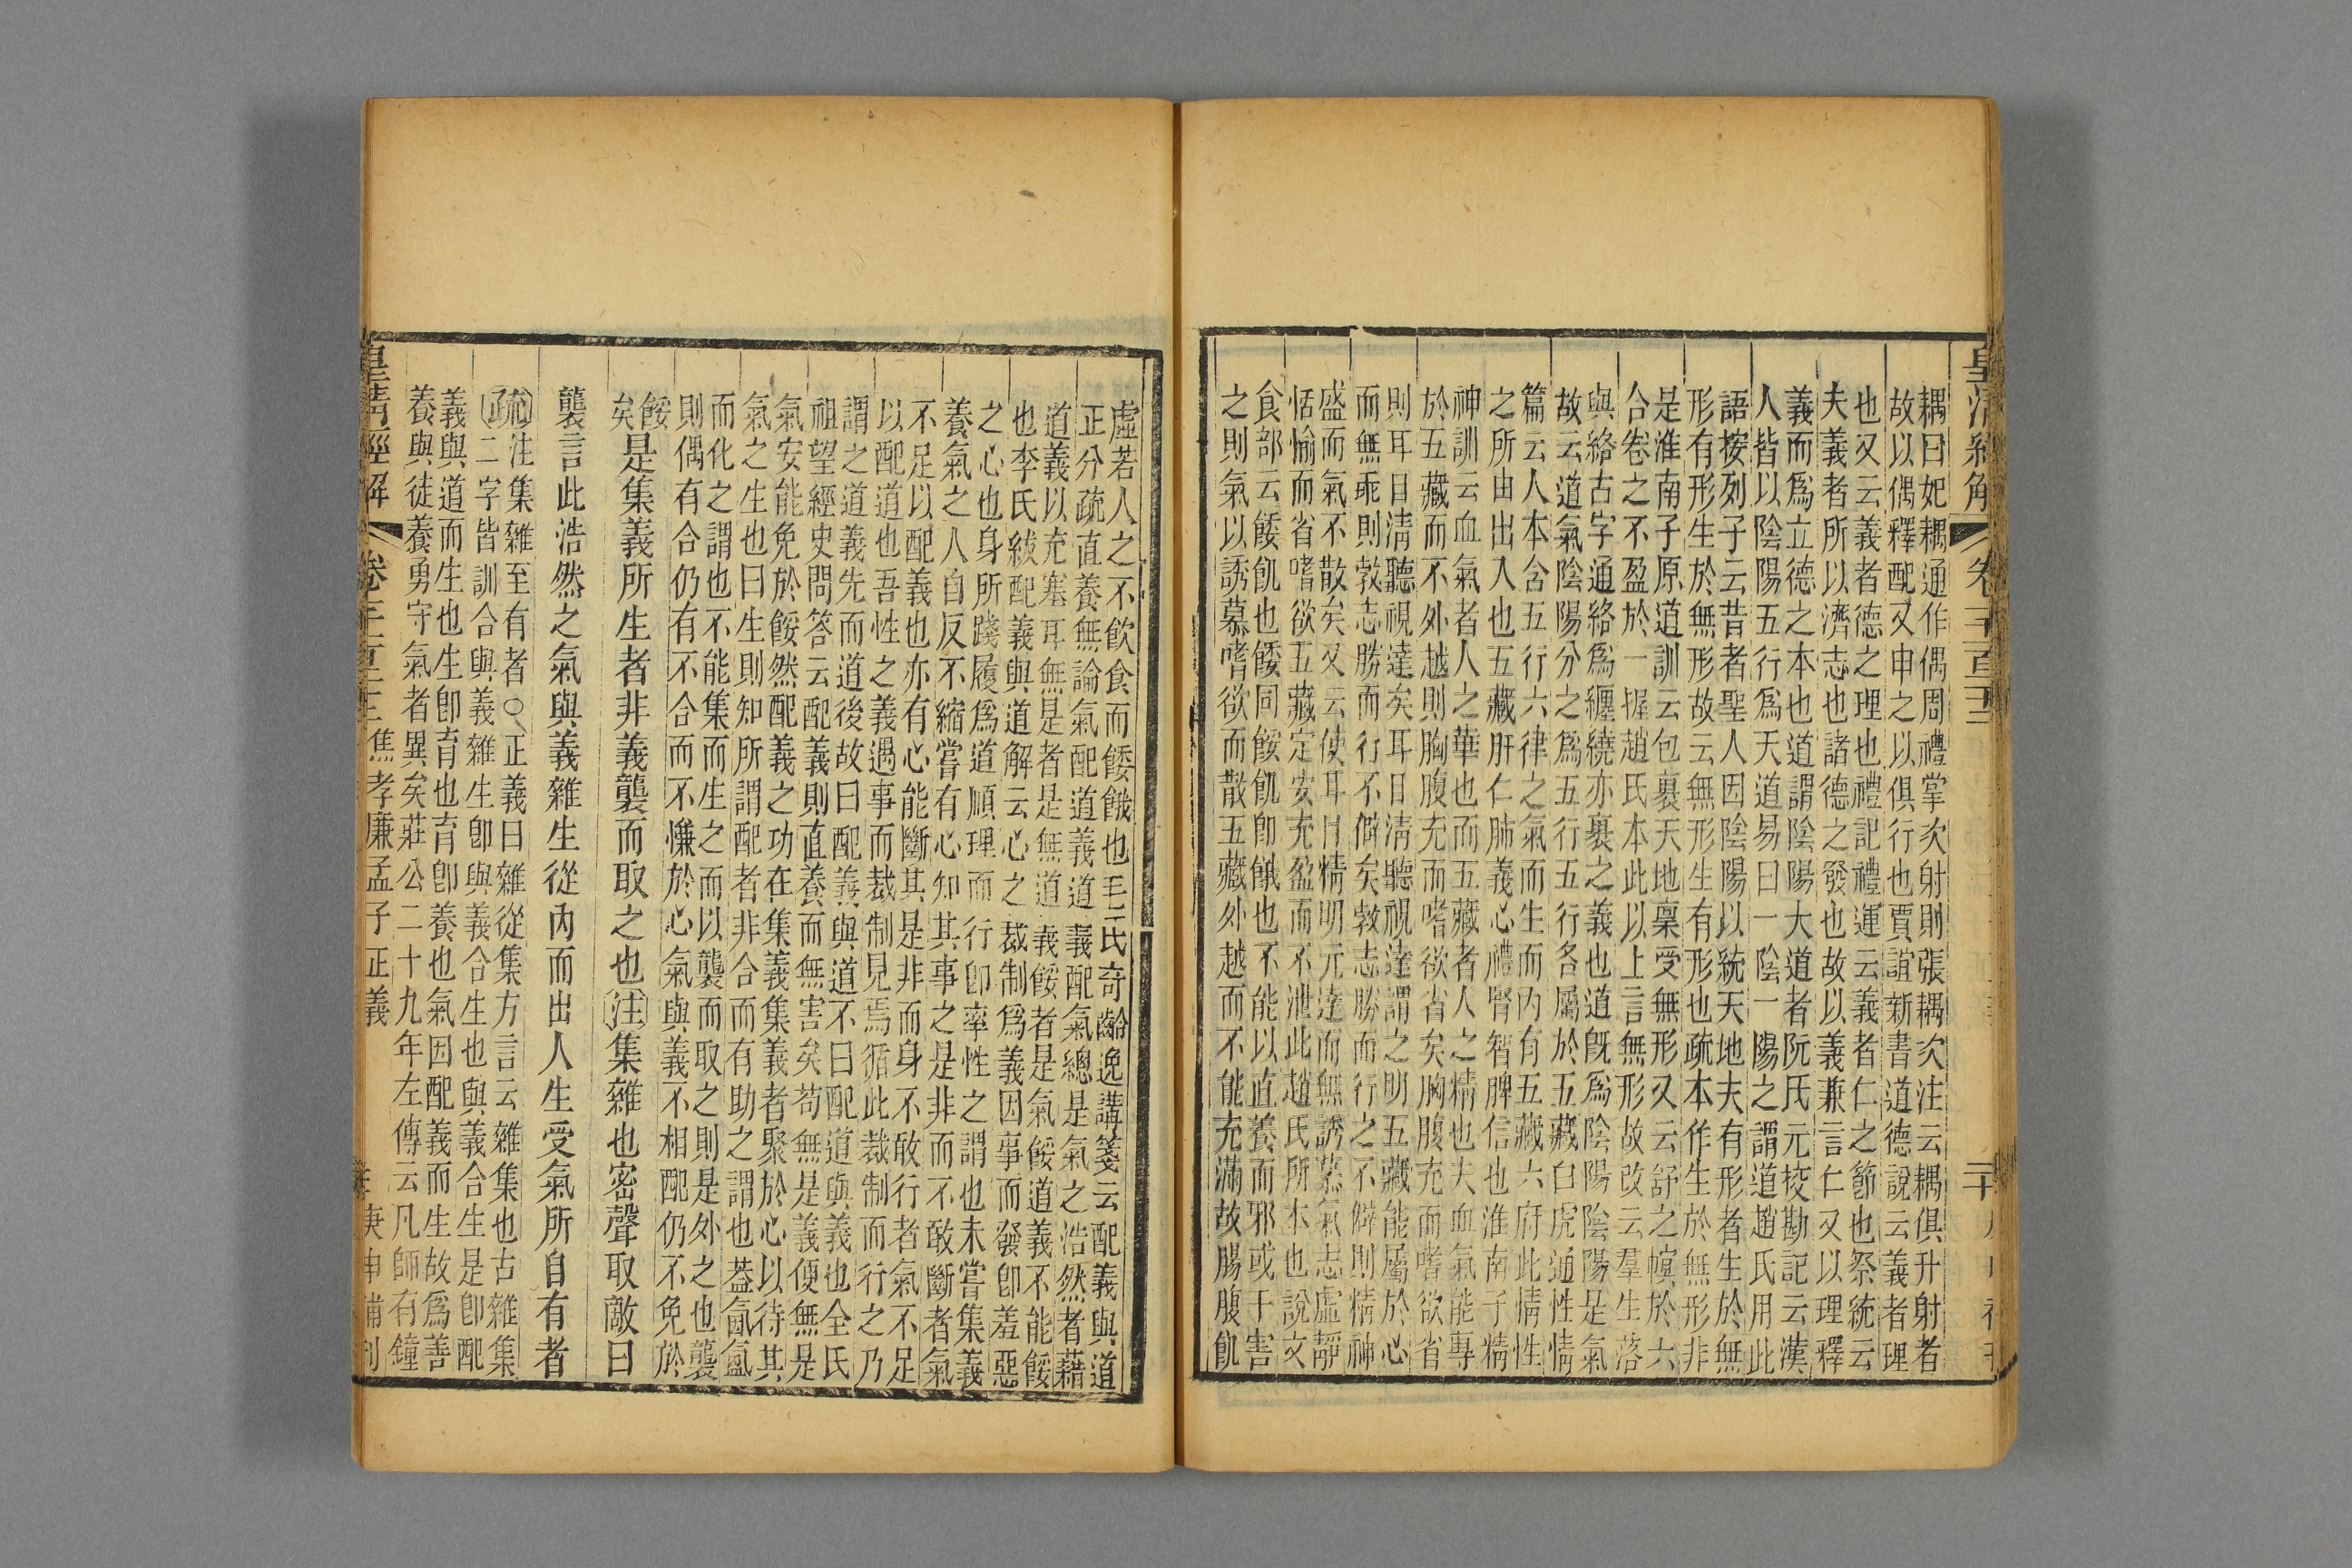 皇清經解 卷千百二十二 二十
耦曰妃耦通作偶周禮掌次射則張耦次注云耦俱升射者
故以偶釋配又申之以俱行也賈誼新書道德說云義者理
也又云義者德之理也禮記禮運云義者仁之節也祭統云
夫義者所以濟志也諸德之發也故以義兼言仁又以理釋
義而爲立德之本也道謂陰陽大道者阮氏元挍勘記云漢
人皆以陰陽五行爲天道易曰一陰一陽之謂道趙氏用此
語按列子云昔者聖人因陰陽以統天地夫有形者生於無
形有形生於無形故云無形生有形也疏本作生於無形非
是淮南子原道訓云包裹天地稟受無形又云舒之幎於六
合卷之不盈於一握趙氏本此以上言無形故改云羣生落
與絡古字通絡爲纏繞亦裹之義也道旣爲陰陽陰陽是氣
故云道氣陰陽分之爲五行五行各屬於五藏白虎通性情
篇云人本含五行六律之氣而生而內有五藏六府此情性
之所由出入也五藏肝仁肺義心禮腎智脾信也淮南子精
神訓云血氣者人之華也而五藏者人之精也夫血氣能專
於五藏而不外越則胸腹充而嗜欲省矣胸腹充而嗜欲省
則耳目淸聽視達矣耳目淸聽視達謂之明五藏能屬於心
而無乖則敦志勝而行不僻矣敦志勝而行之不僻則精神
盛而氣不散矣又云使耳目精明元達而無誘慕氣志虛靜
恬愉而省嗜欲五藏定安充盈而不泄此趙氏所本也說文
食部云餧飢也餧同餒飢卽餓也不能以直養而邪或干害
之則氣以誘慕嗜欲而散五藏外越而不能充滿故腸腹飢
虛若人之不飮食而餧餓也毛氏奇齡逸講箋云配義與道
正分疏直養無論氣配道義道義配氣總是氣之浩然者藉
道義以充塞耳無是者是無道義餒者是氣餒道義不能餒
也李氏紱配義與道解云心之裁制爲義因事而發卽羞惡
之心也身所踐履爲道順理而行卽率性之謂也未嘗集義
養氣之人自反不縮嘗有心知其事之是非而不敢斷者氣
不足以配義也亦有心能斷其是非而身不敢行者氣不足
以配道也吾性之義遇事而裁制見焉循此裁制而行之乃
謂之道義先而道後故曰配義與道不曰配道與義也全氏
祖望經史問答云配義則直養而無害矣苟無是義便無是
氣安能免於餒然配義之功在集義集義者聚於心以待其
氣之生也曰生則知所謂配者非合而有助之謂也蓋氤氳
而化之謂也不能集而生之而以襲而取之則是外之也襲
則偶有合仍有不合而不慊於心氣與義不相配仍不免於
餒
矣
是集義所生者非義襲而取之也注集雜也密聲取敵曰
襲言此浩然之氣與義雜生從內而出人生受氣所自有者
疏注集雜至有者○正義曰雜從集方言云雜集也古雜集
二字皆訓合與義雜生卽與義合生也與義合生是卽配
義與道而生也生卽育也育卽養也氣因配義而生故爲善
養與徒養勇守氣者異矣莊公二十九年左傳云凡師有鐘
皇清經解 卷千百二十二焦孝廉孟子正義 庚申補刊